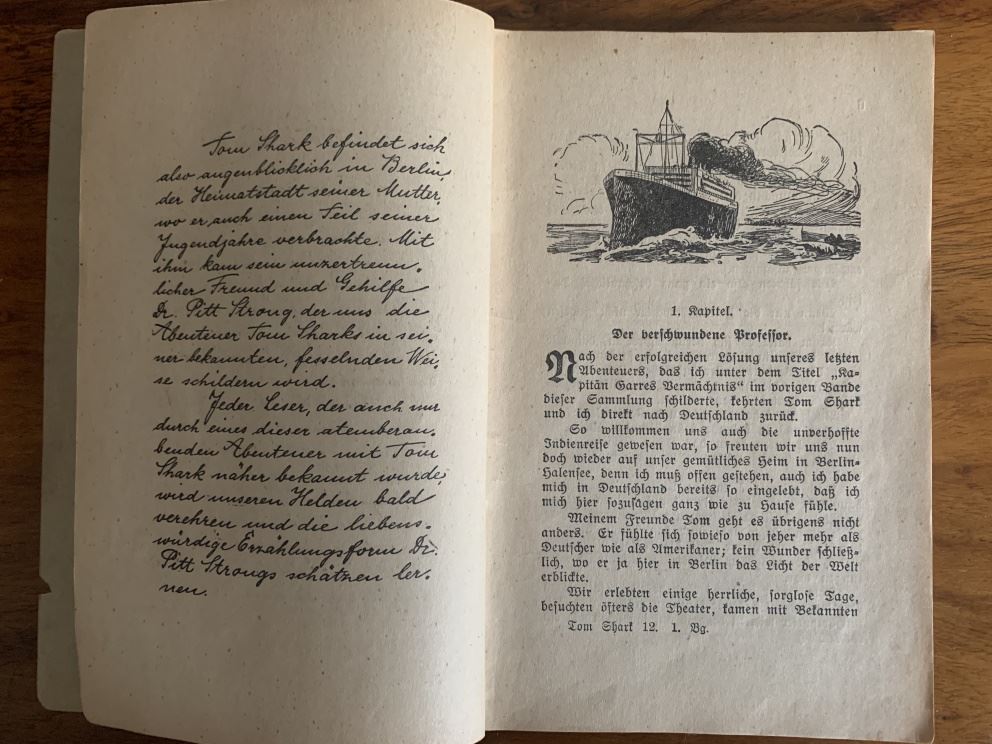 Tom Shark befindet sich
also augenblicklich in Berlin,
der Heimatstadt seiner Mutter,
wo er auch einen Teil seiner
Jugendjahre verbrachte. Mit
ihm kam sein unzertrenn-
licher Freund und Gehilfe
Dr. Pitt Strong, der uns die
Abenteuer Tom Sharks in sei-
ner bekannten, fesselnden Wei-
se schildern wird.
Jeder Leser, der auch nur
durch eines dieser atemberau-
benden Abenteuer mit Tom
Shark näher bekannt wurde,
wird unseren Helden bald
verehren und die liebens-
würdige Erzählungsform Dr.
Pitt Strongs schätzen ler-
nen.
1. Kapitel.
Der verschwundene Professor.
Nach der erfolgreichen Lösung unseres letzten
Abenteuers, das ich unter dem Titel „Ka-
pitän Garres Vermächtnis“ im vorigen Bande
dieser Sammlung schilderte, kehrten Tom Shark
und ich direkt nach Deutschland zurück.
So willkommen uns auch die unverhoffte
Indienreise gewesen war, so freuten wir uns nun
doch wieder auf unser gemütliches Heim in Berlin-
Halensee, denn ich muß offen gestehen, auch ich habe
mich in Deutschland bereits so eingelebt, daß ich
mich hier sozusagen ganz wie zu Hause fühle.
Meinem Freunde Tom geht es übrigens nicht
anders. Er fühlte sich sowieso von jeher mehr als
Deutscher wie als Amerikaner; kein Wunder schließ-
lich, wo er ja hier in Berlin das Licht der Welt
erblickte.
Wir erlebten einige herrliche, sorglose Tage,
besuchten öfters die Theater, kamen mit Bekannten
Tom Shark 12. 1. Bg.